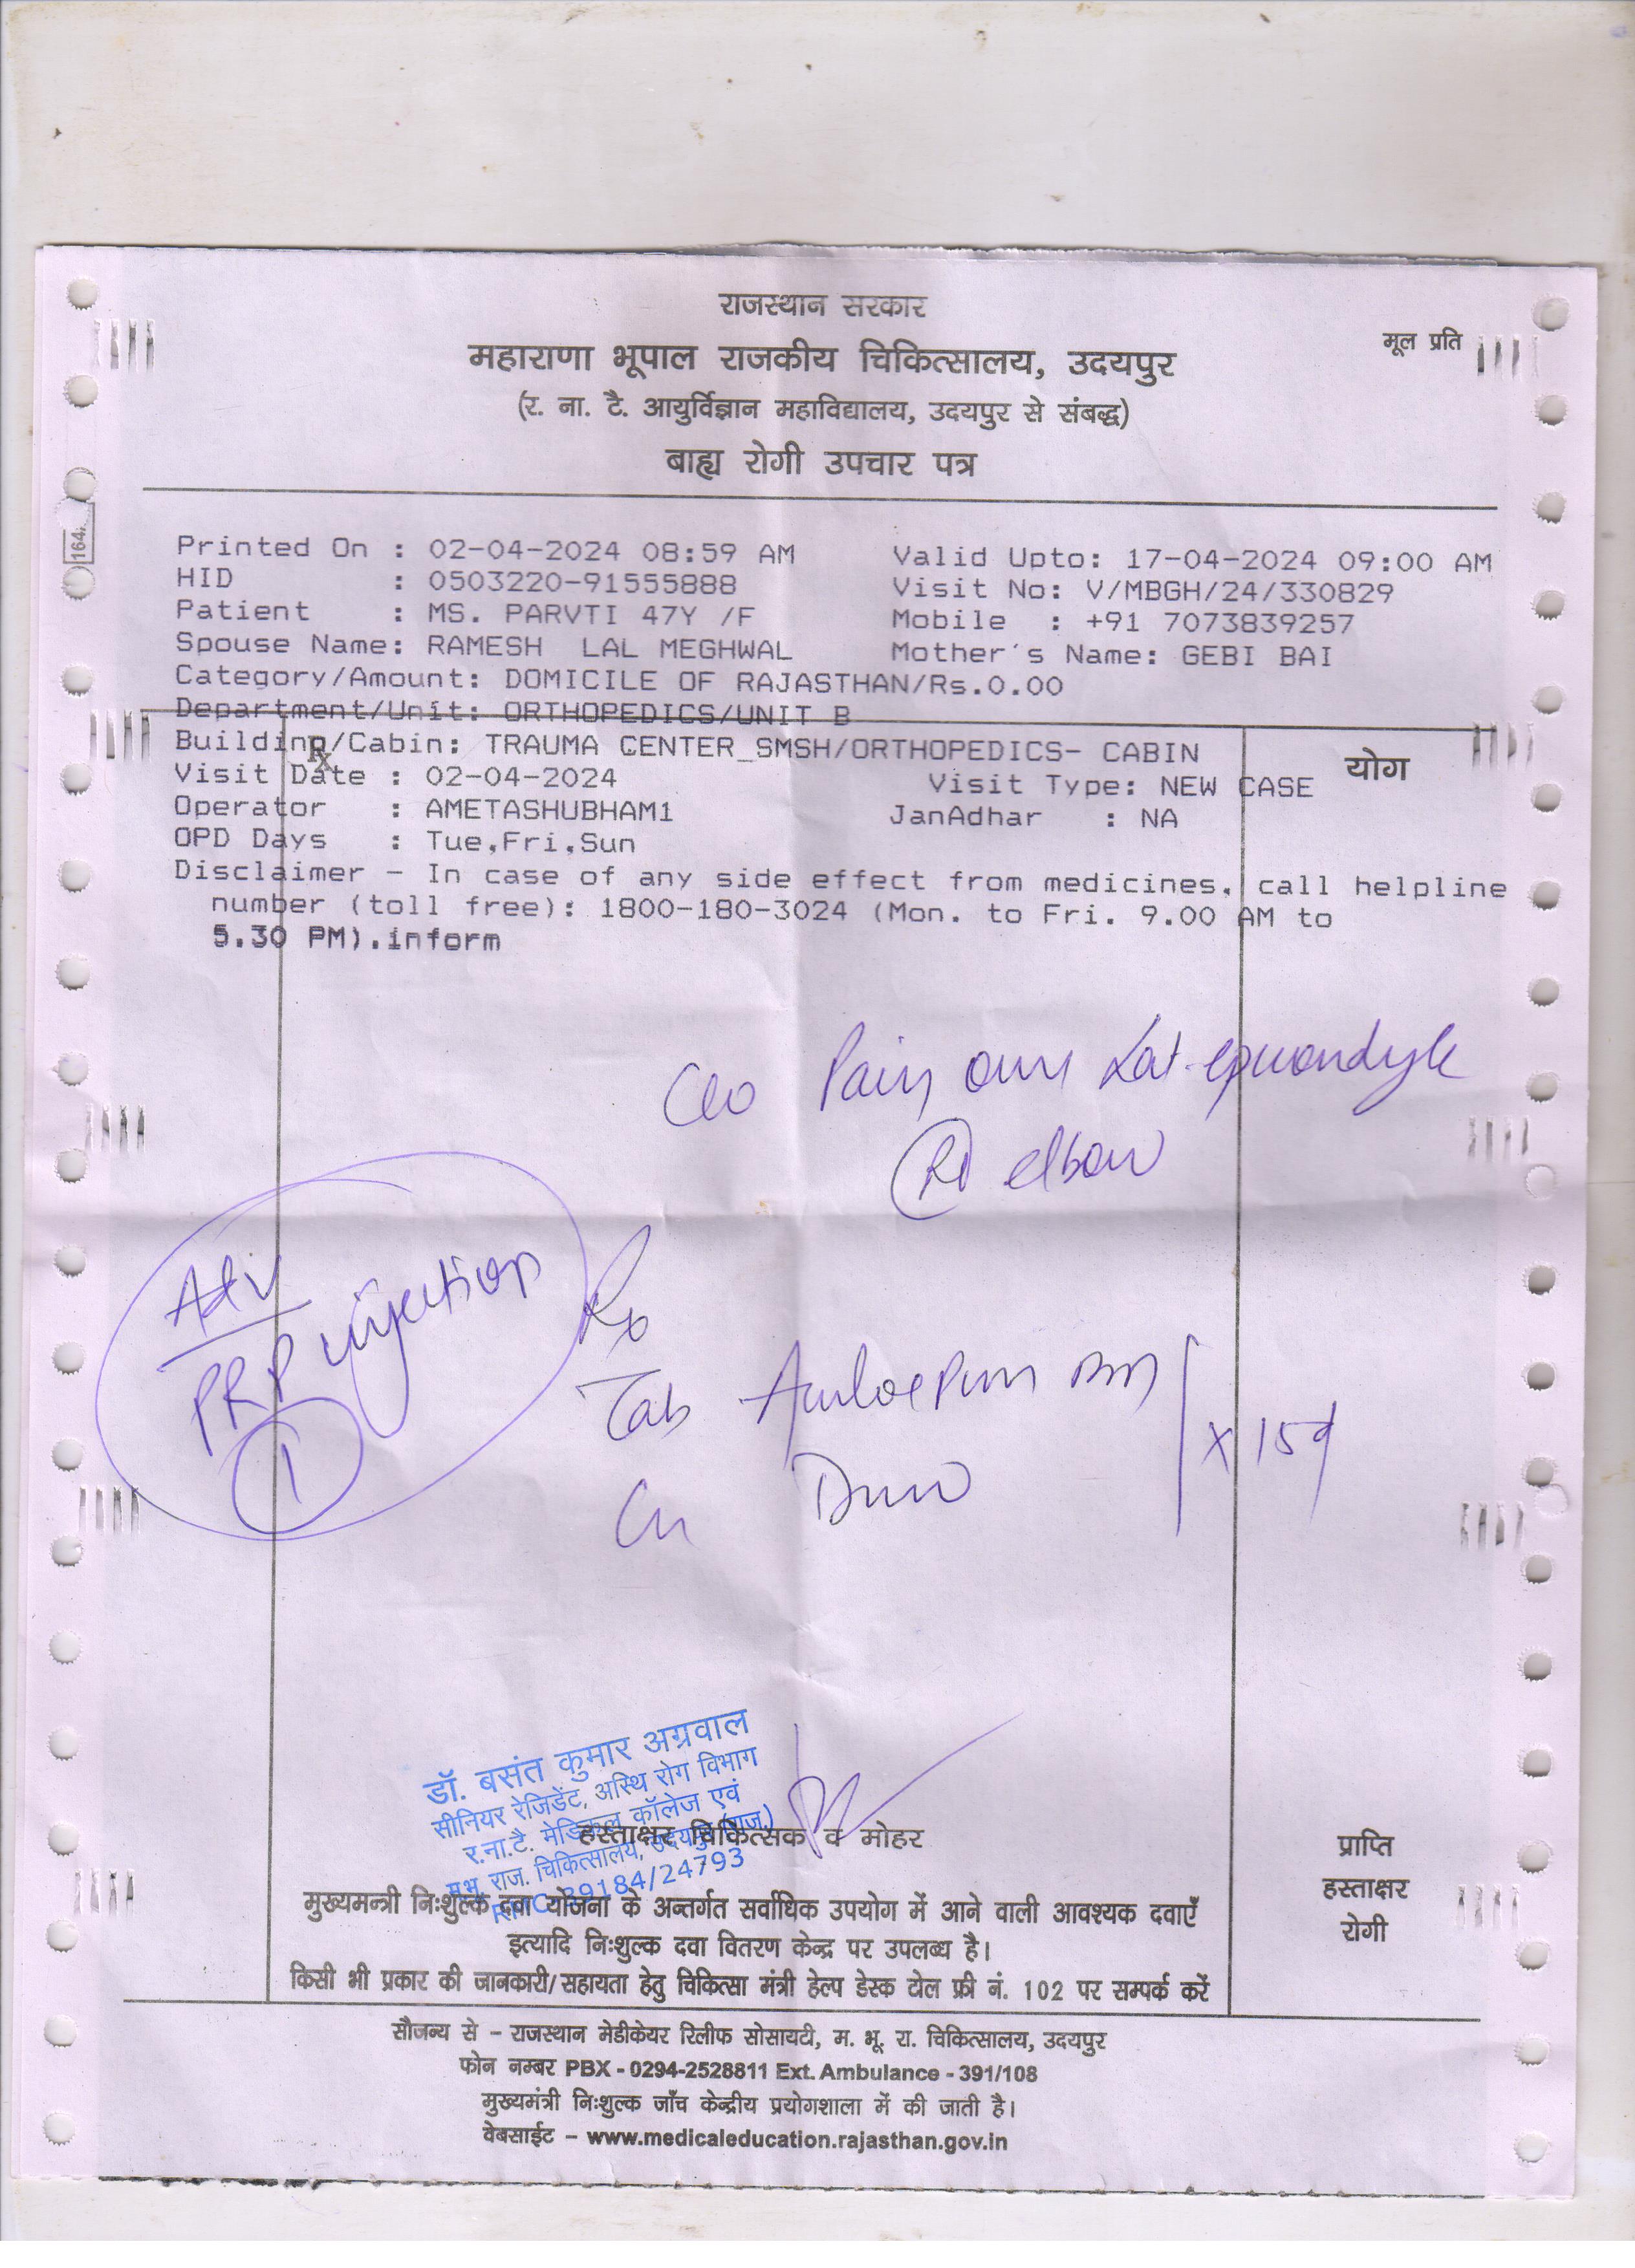 राजस्थान सरकार
मूल प्रति
महाराणा भूपाल राजकीय चिकित्सालय, उदयपुर
(र. ना. टै. आयुर्विज्ञान महाविद्यालय, उदयपुर से संबद्ध)
बाह्य रोगी उपचार पत्र
164
Printed On : 02-04-2024 08:59 AM Valid Upto: 17-04-2024 09:00 AM
HID : 0503220-91555888 Visit No: V/MBGH/24/330829
Patient : MS. PARVTI 47Y /F Mobile : +91 7073839257
Spouse Name: RAMESH LAL MEGHWAL Mother's Name: GEBI BAI
Category/Amount: DOMICILE OF RAJASTHAN/Rs.0.00
Department/Unit: ORTHOPEDICS/UNIT B
Building/Cabin: TRAUMA CENTER_SMSH/ORTHOPEDICS- CABIN
Rx
योग
Visit Date : 02-04-2024 Visit Type: NEW CASE
Operator : AMETASHUBHAM1 JanAdhar : NA
OPD Days : Tue,Fri,Sun
Disclaimer - In case of any side effect from medicines, call helpline
number (toll free): 1800-180-3024 (Mon. to Fri. 9.00 AM to
5.30 PM).inform
C/o Pain over Lat. epicondyle
Rt elbow
Adv
PRP injection
1
Rx
Tab
x 15d
डॉ. बसंत कुमार अग्रवाल
सीनियर रेजिडेंट, अस्थि रोग विभाग
र.ना.टै. मेडिकल कॉलेज एवं
म.भू. राज. चिकित्सालय, उदयपुर (राज.)
39184/24793
हस्ताक्षर चिकित्सक व मोहर
प्राप्ति
हस्ताक्षर
रोगी
मुख्यमन्त्री निःशुल्क दवा योजना के अन्तर्गत सर्वाधिक उपयोग में आने वाली आवश्यक दवाएँ
इत्यादि निःशुल्क दवा वितरण केन्द्र पर उपलब्ध है।
किसी भी प्रकार की जानकारी/सहायता हेतु चिकित्सा मंत्री हेल्प डेस्क टोल फ्री नं. 102 पर सम्पर्क करें
सौजन्य से - राजस्थान मेडीकेयर रिलीफ सोसायटी, म. भू. रा. चिकित्सालय, उदयपुर
फोन नम्बर PBX - 0294-2528811 Ext. Ambulance - 391/108
मुख्यमंत्री निःशुल्क जाँच केन्द्रीय प्रयोगशाला में की जाती है।
वेबसाईट - www.medicaleducation.rajasthan.gov.in